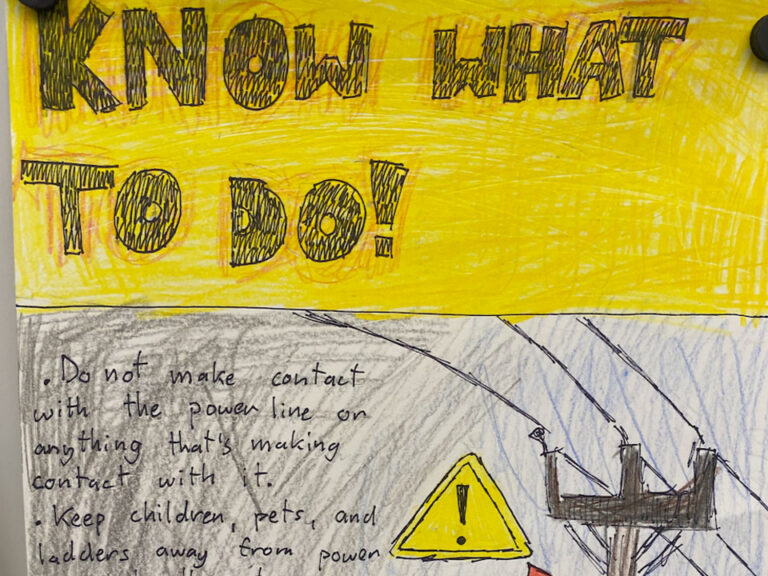 KNOW WHAT
TO DO!
• Do not make contact
with the power line or
anything that's making
contact with it.
• Keep children, pets, and
ladders away from power
!